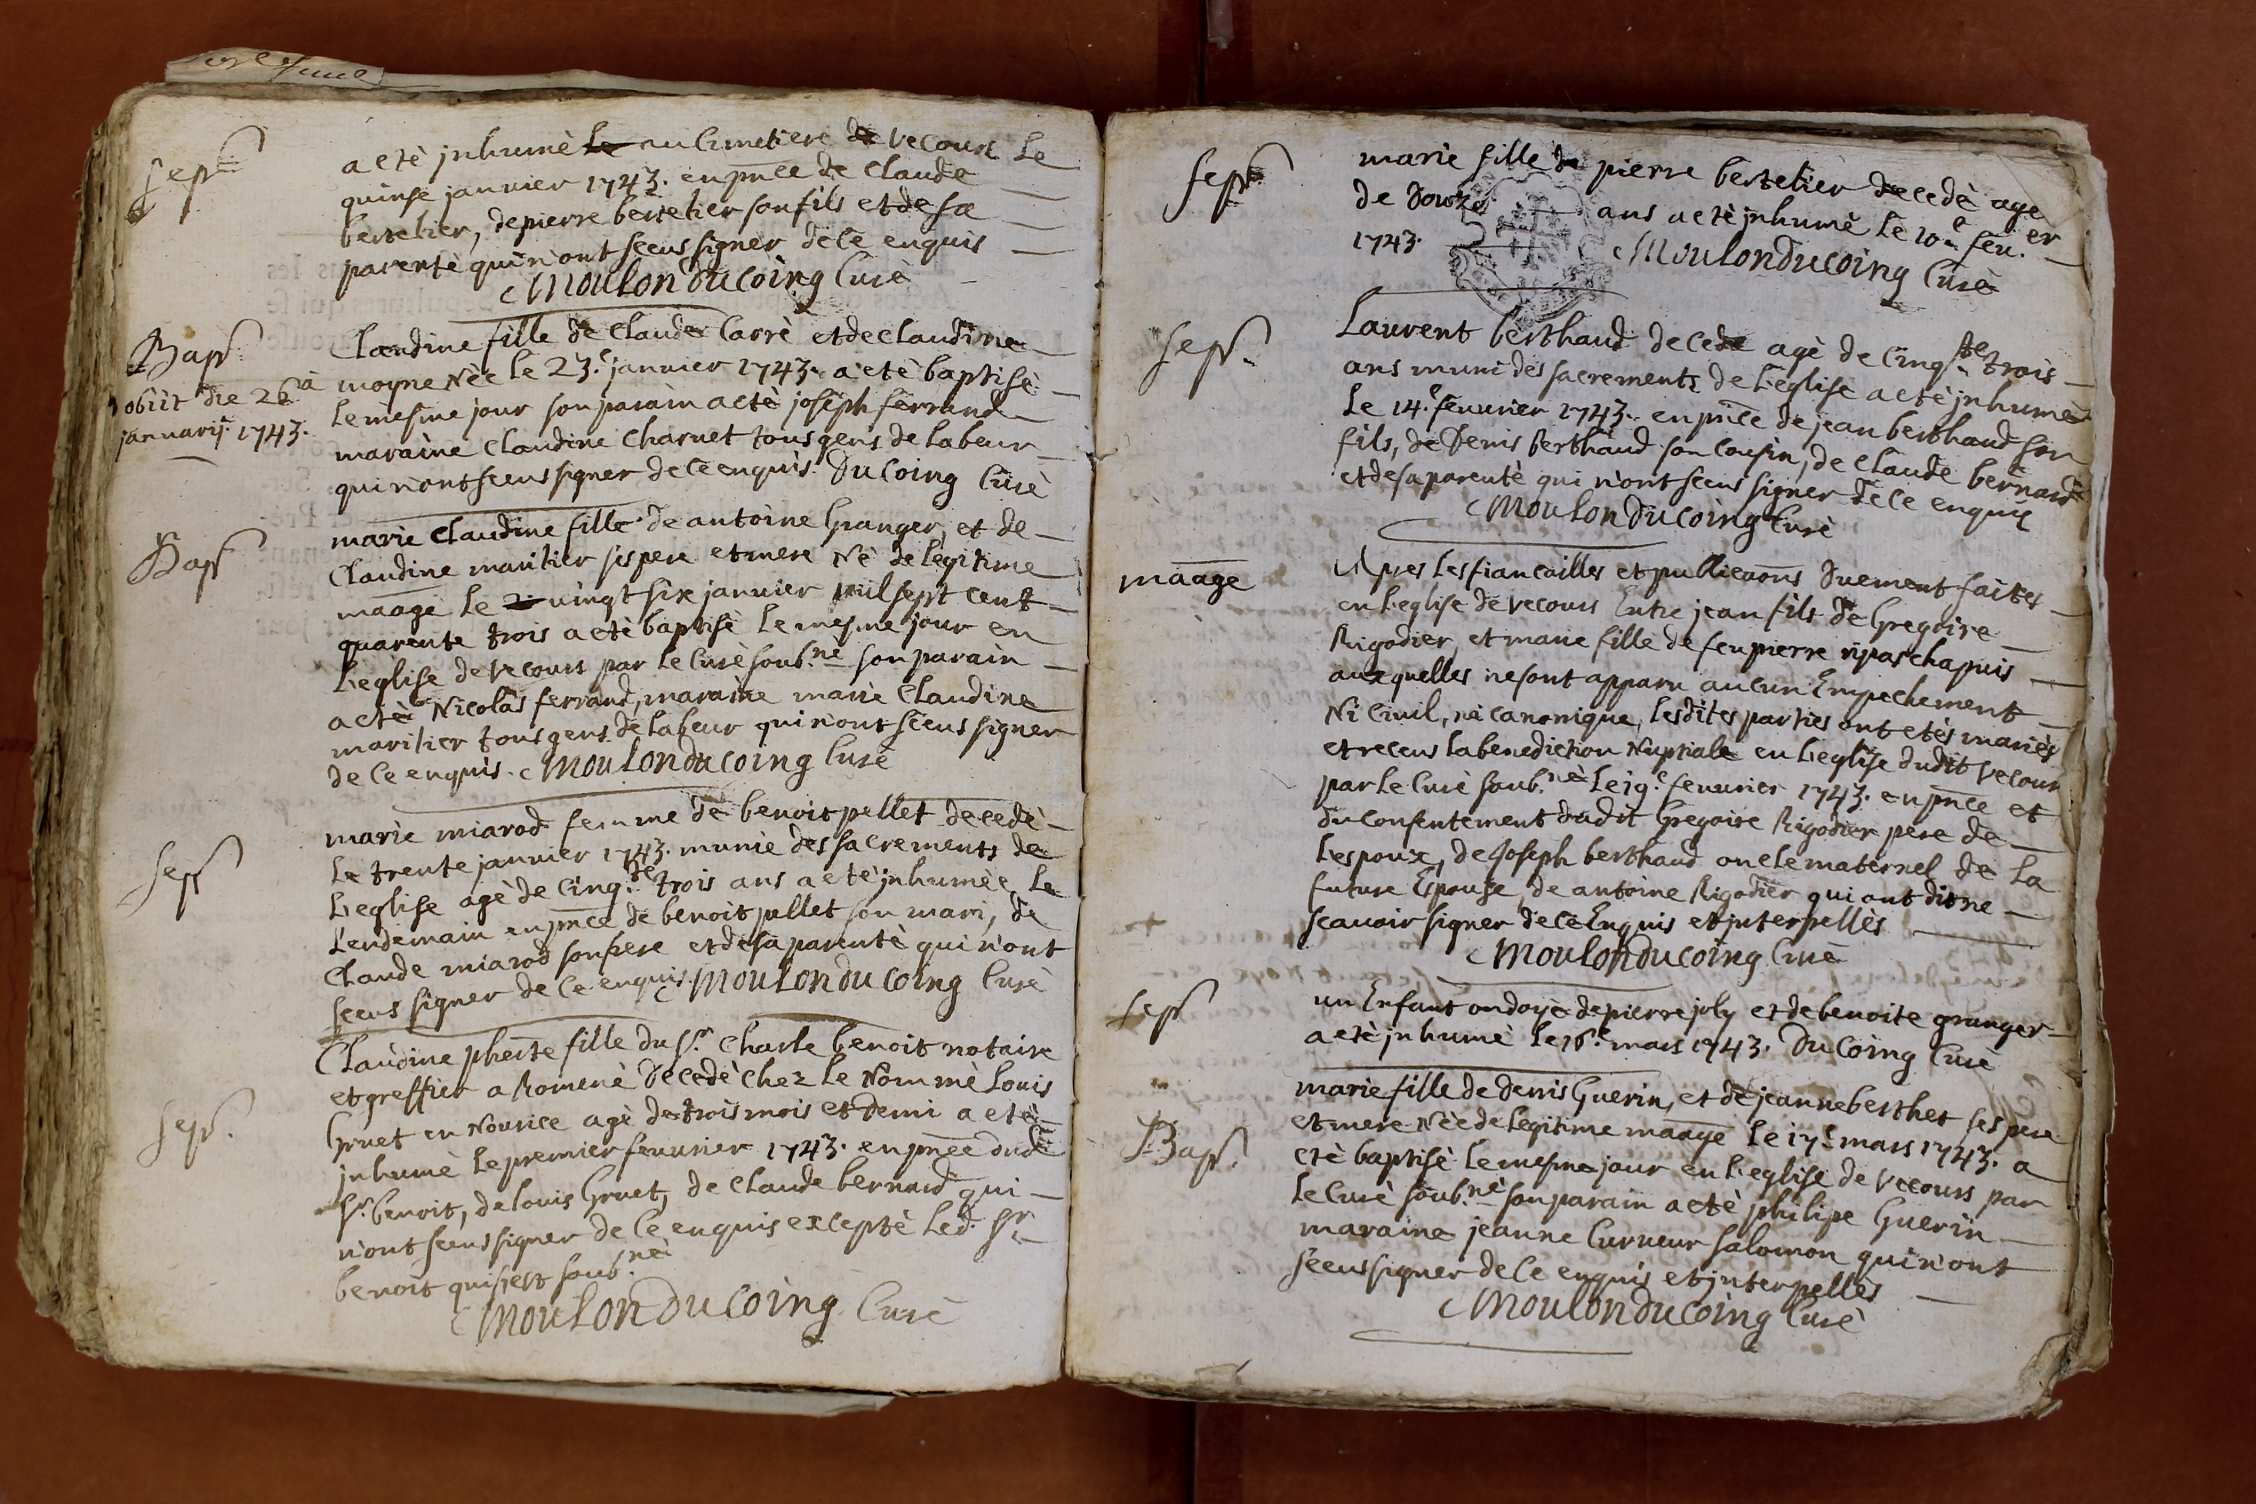 Sep.re
a etè jnhumè au Cimetiere de Vecour Le
quinse janvier 1743. en pñce de Claude
bertelier, de pierre bertelier son fils et de sa
parentè qui n'ont sceus signer de Ce enquis
Moulon Du Coing Curè
Bap.
obiit die 26a
januarij 1743.
Claudine fille de Claude Carrè et de Claudine
moyne Nèe Le 23.e janvier 1743. a etè baptisè
Le mesme jour son parain a etè joseph ferrand
maraine Claudine Charvet tous gens de Labeur
qui n'ont sceus signer de Ce enquis. Du Coing Curè
Bap
marie Claudine fille de antoine Granger, et de
Claudine maritier ses pere et mere Nè de Legitime
maage Le vingt six janvier mil sept cent
quarente trois a etè baptisè Le mesme jour en
L'eglise de Vecours par Le Curè soub.nè son parain
a etè Nicolas ferrand, maraine marie Claudine
maritier tous gens de Labeur qui n'ont sceus signer
de Ce enquis. Moulon du Coing Curè
Sep
marie miarod femme de benoit pellet decedè
Le trente janvier 1743. munie des sacrements de
L'eglise agè de Cinq.te trois ans a etè jnhumèe Le
Lendemain en pñce de benoit pellet son mari, de
Claude miarod son frere et de sa parentè qui n'ont
sceus signer de Ce enquis. Moulon du Coing Curè
Sep.
Claudine pherte fille du Sr. Charle benoit notaire
et greffier a Romenè Decedè chez Le Nommè Louis
Gruet en Nourice agè de trois mois et demi a etè
jnhumè Le premier fevurier 1743. en pñce dud.
Sr. benoit, de Louis Gruet, de Claude bernard qui
n'ont sceus signer de Ce enquis exceptè Led. Sr.
benoit qui s'est soub.nè
Moulon Du Coing Curè
Sep.
marie fille de pierre bertelier decedè age
de Douze ans a etè jnhumè Le 10.e feu.er
1743.
Moulon Du Coing Curè
Sep.
Laurent berthaud decede agè de Cinq.te trois
ans muni des sacrements de L'eglise a etè jnhumè
Le 14.e fevurier 1743. en pñce de jean berthaud son
fils, de Denis berthaud son Cousin, de Claude bernard
et de sa parentè qui n'ont sceus signer de Ce enquis
Moulon Du Coing Curè
maage
Apres Les fiancailles et publications Duement faites
en L'eglise de Vecours Entre jean fils de Gregoire
Rigodier, et marie fille de feu pierre ripas chapuis
auxquelles ne sont apparu aucun Empechement
Ni Civil, ni canonique, Lesdites parties ont etès mariès
et receus La benediction Nuptiale en L'eglise dudit Vecour
par Le Curè soub.nè Le 19.e fevurier 1743. en pñce et
du Consentement dudit Gregoire Rigodier pere de
L'espoux, de Joseph berthaud oncle maternel de La
future Espouse, de antoine Rigodier qui ont dit ne
scavoir signer de Ce Enquis et jnterpellès
Moulon du Coing Curè
Sep.
un Enfant ondoyè de pierre joly et de benoite granger
a etè jnhumè Le 16.e mars 1743. Du Coing Curè
Bap.
marie fille de denis Guerin, et de jeanne berthet ses pere
et mere Nèe de Legitime maage Le 17.e mars 1743. a
etè baptisè Le mesme jour en L'eglise de Vecours par
Le Curè soub.nè son parain a etè philipe Guerin
maraine jeanne Curveur salomon qui n'ont
sceus signer de Ce enquis et jnterpellès
Moulon du Coing Curè